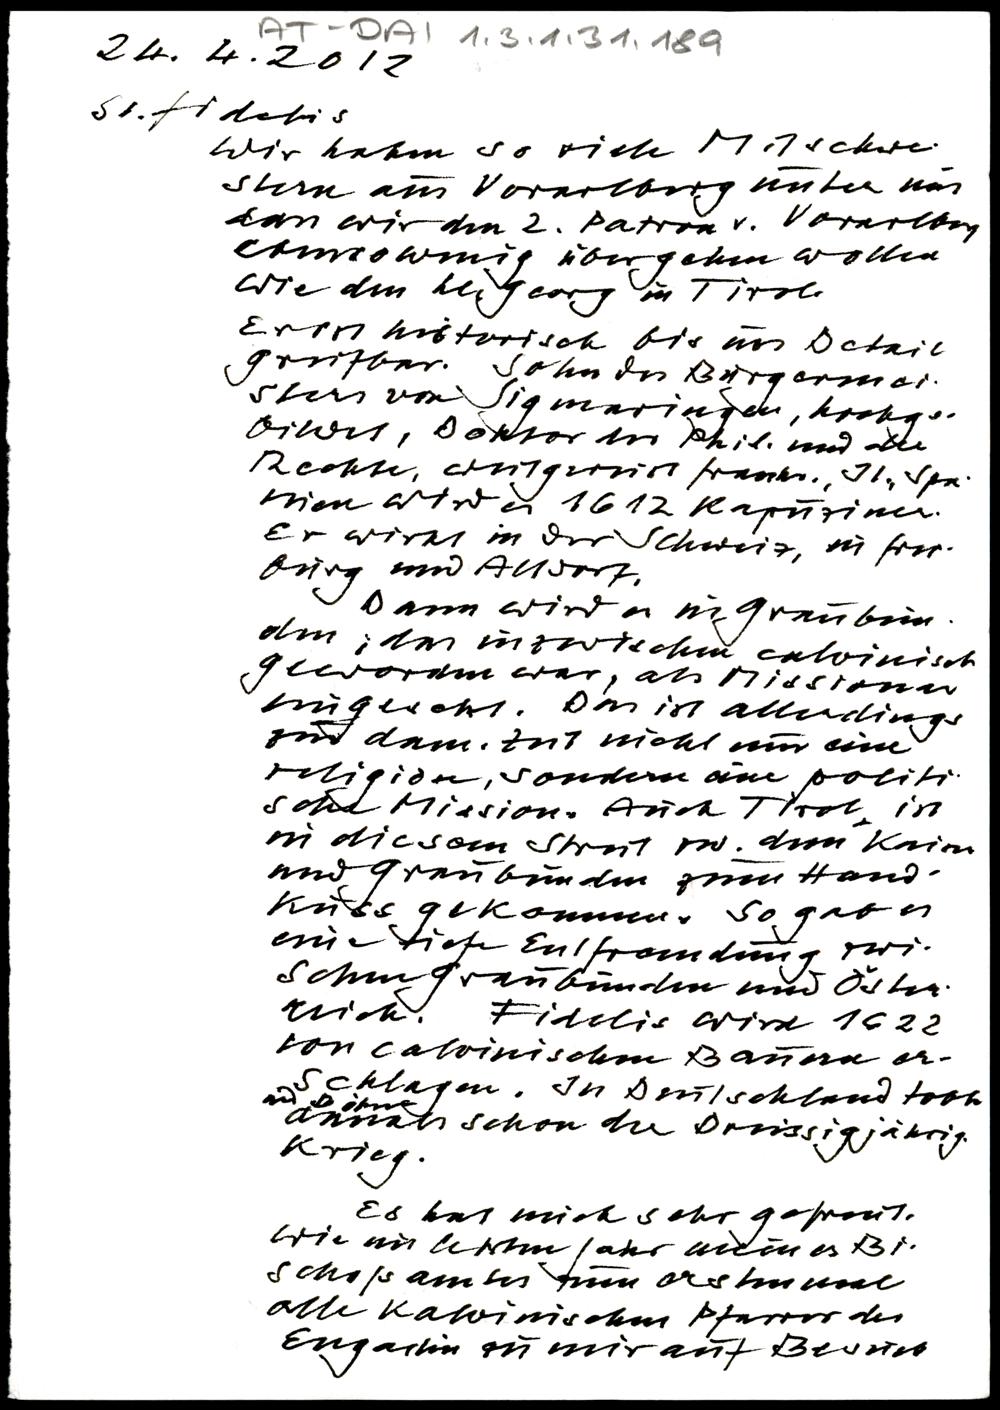 AT-DAI 1.3.1.31.189
24. 4. 2012
St. Fidelis
Wir haben so viele Mitschwe-
stern aus Vorarlberg unter uns
dass wir den 2. Patron v. Vorarlberg
ebensowenig übergehen wollen
wie den hl. Georg in Tirol.
Er ist historisch bis ins Detail
greifbar. Sohn des Bürgermei-
sters von Sigmaringen, hochge-
bildet, Doktor der Phil. und der
Rechte, weitgereist Frankr., It., Spa-
nien wird er 1612 Kapuziner.
Er wirkt in der Schweiz, in Frei-
burg und Altdorf.
Dann wird er in Graubün-
den, das inzwischen calvinisch
geworden war, als Missionar
eingesetzt. Das ist allerdings
zur dam. Zeit nicht nur eine
religiöse, sondern eine politi-
sche Mission. Auch Tirol ist
in diesem Streit zw. dem Kaiser
und Graubünden zum Hand-
kuss gekommen. So gab es
eine tiefe Entfremdung zwi-
schen Graubünden und Öster-
reich. Fidelis wird 1622
von calvinischen Bauern er-
schlagen. In Deutschland tobte
und Böhmen
damals schon der Dreissigjährig.
Krieg.
Es hat mich sehr gefreut,
wie im letzten Jahr meines Bi-
schofsamtes zum erstenmal
alle kalvinischen Pfarrer des
Engadin zu mir auf Besuch